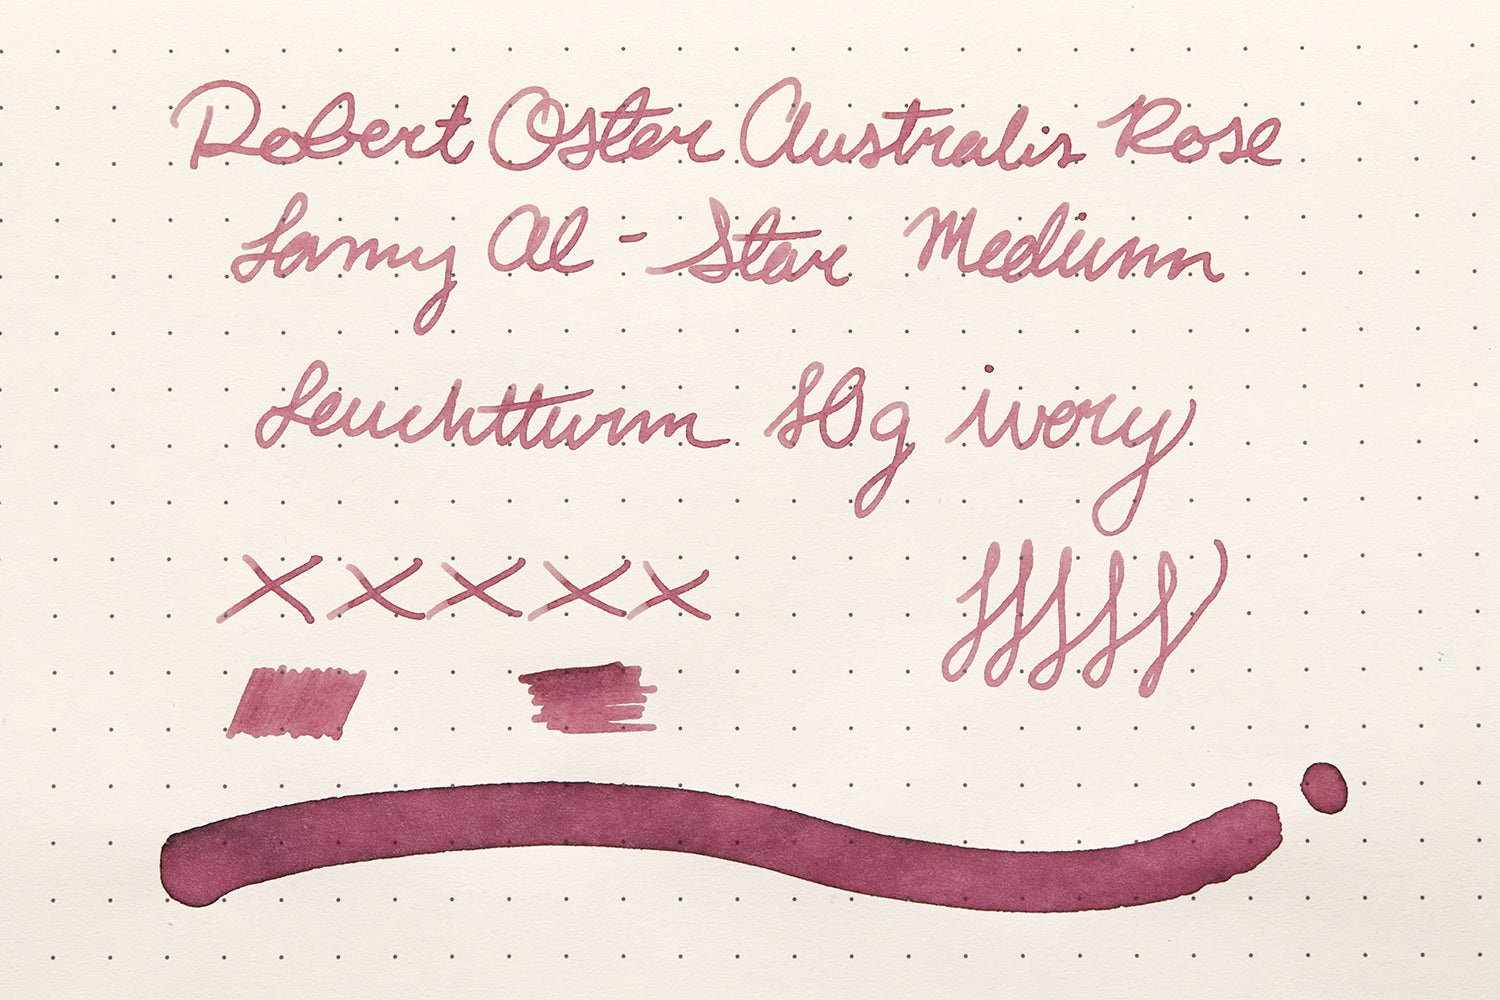 Robert Oster Australis Rose
Lamy Al-Star Medium
Leuchtturm 80g ivory
x x x x x